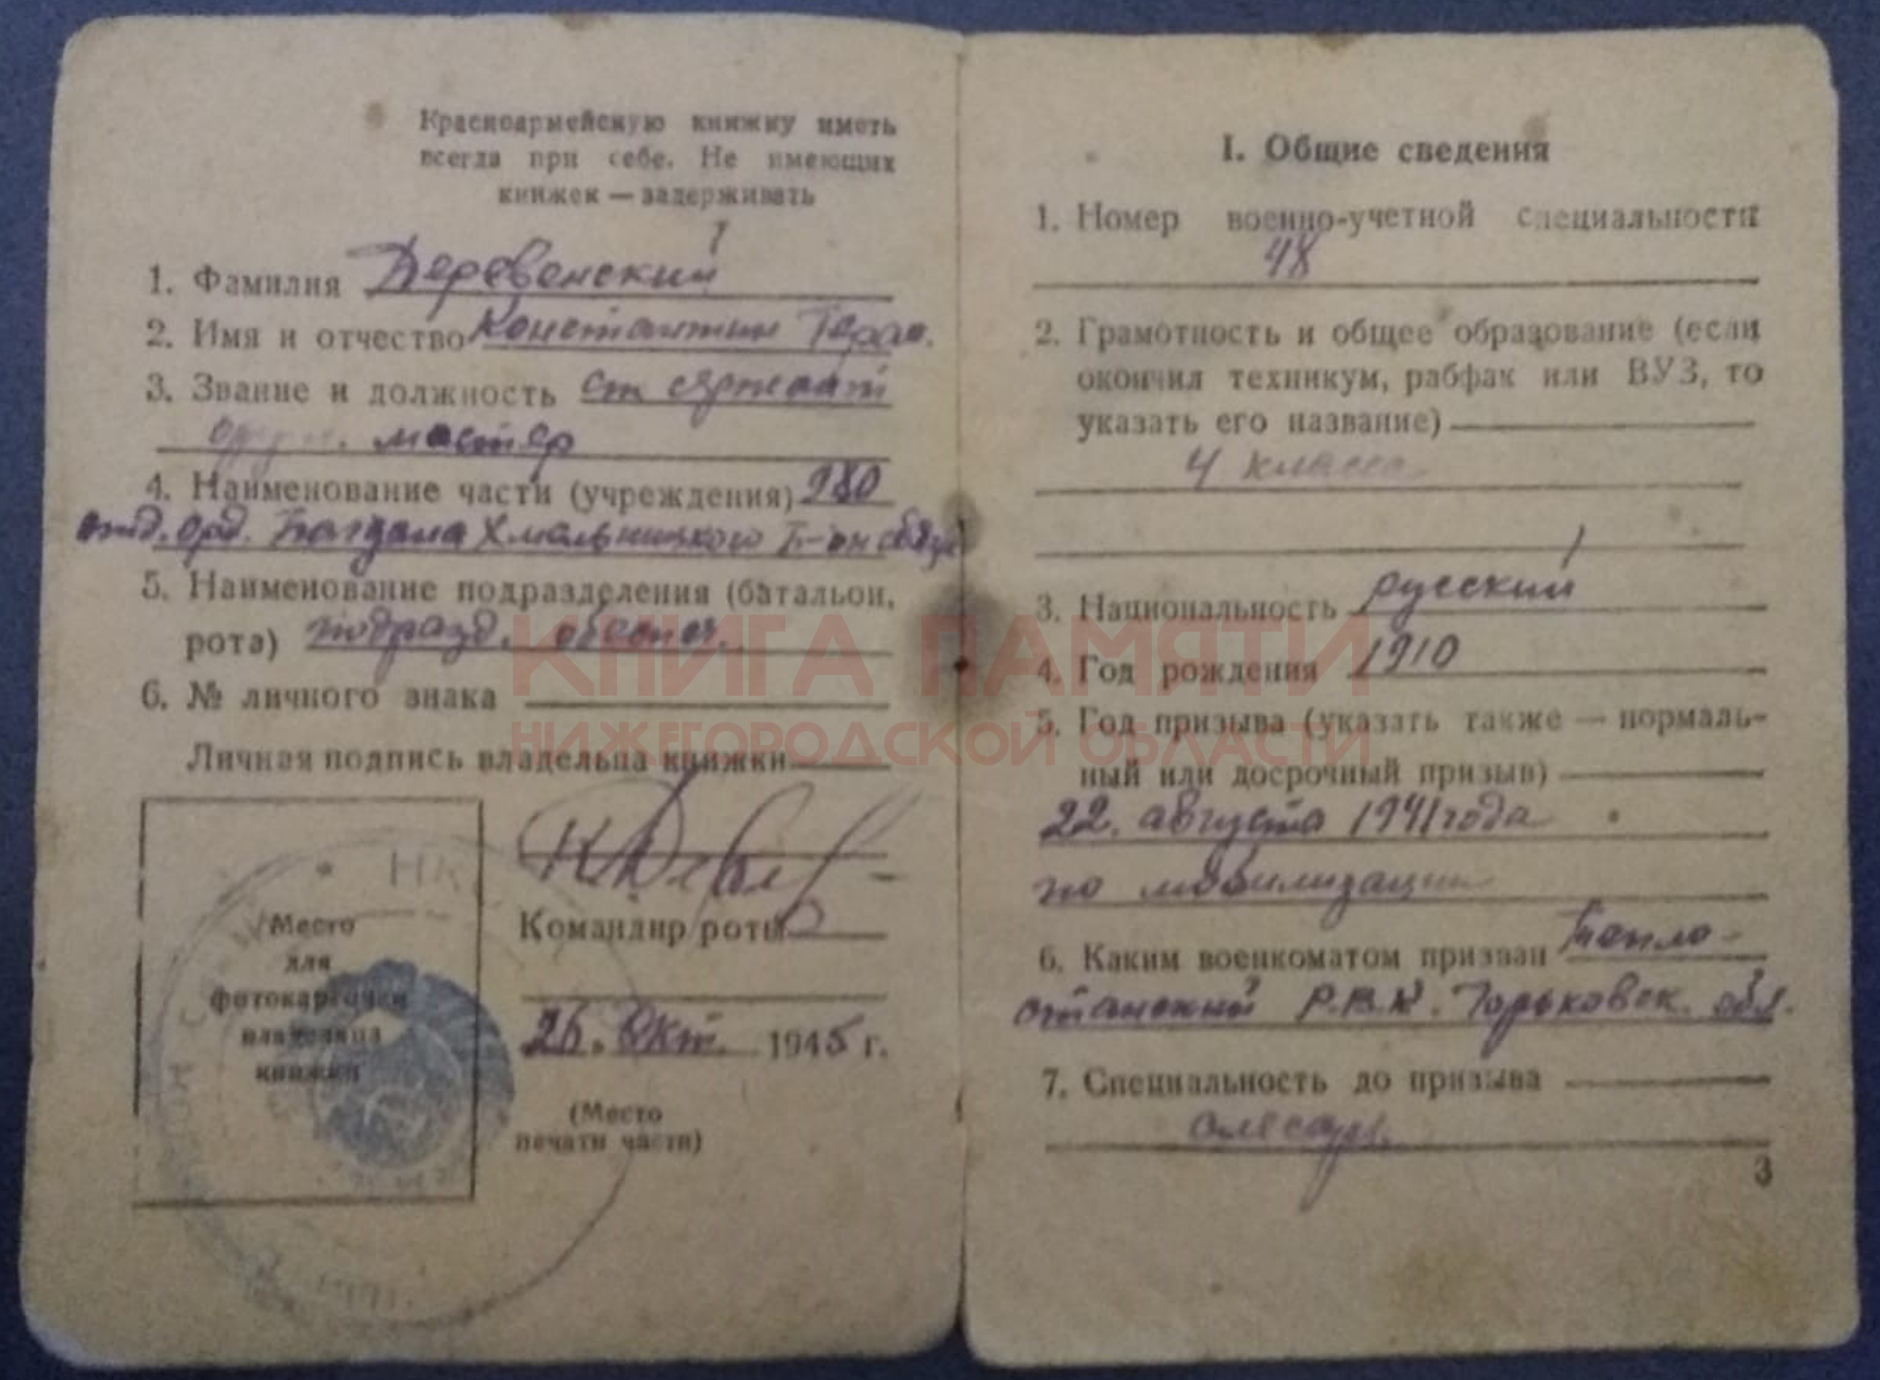 Красноармейскую книжку иметь
всегда при себе. Не имеющих
книжек — задерживать
1. Фамилия Деревенский
2. Имя и отчество Константин Герас.
3. Звание и должность ст. сержант
оруж. мастер
4. Наименование части (учреждения) 280
отд. орд. Богдана Хмельницкого б-он связи
5. Наименование подразделения (батальон,
рота) подразд. обеспеч.
6. № личного знака
Личная подпись владельца книжки
Место
для
фотокарточки
владельца
книжки
Командир роты
26. Окт. 1945 г.
(Место
печати части)
I. Общие сведения
1. Номер военно-учетной специальности
48
2. Грамотность и общее образование (если
окончил техникум, рабфак или ВУЗ, то
указать его название)
4 класса
3. Национальность русский
4. Год рождения 1910
5. Год призыва (указать также — нормаль-
ный или досрочный призыв)
22. августа 1941 года
по мобилизации
6. Каким военкоматом призван Тепло-
станский Р.В.К. Горьковск. обл.
7. Специальность до призыва
слесарь
3
КНИГА ПАМЯТИ
НИЖЕГОРОДСКОЙ ОБЛАСТИ